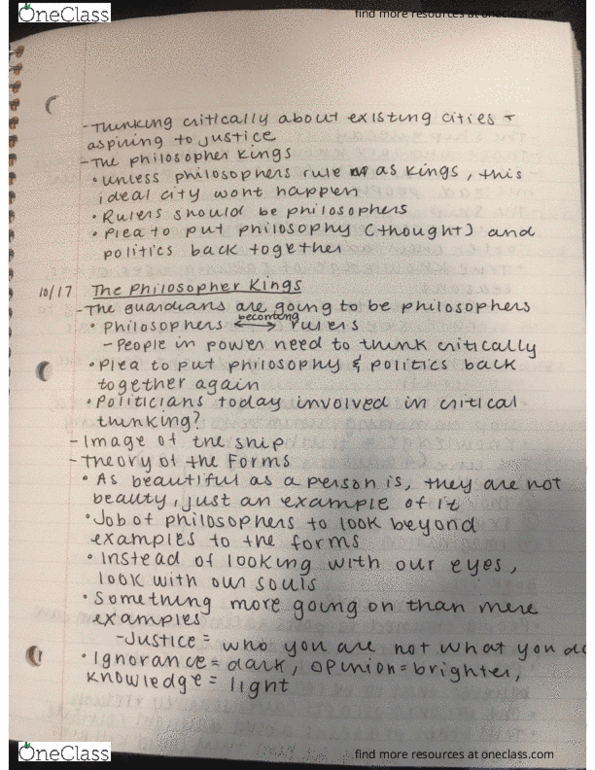 OneClass
find more resources at oneclass.com
-Thinking critically about existing cities +
aspiring to justice
-The philosopher kings
• unless philosophers rule as kings, this
ideal city wont happen
• Rulers should be philosophers
• Plea to put philosophy (thought) and
politics back together
10/17 The Philosopher Kings
-The guardians are going to be philosophers
becoming
• Philosophers ↔ rulers
-People in power need to think critically
• Plea to put philosophy & politics back
together again
• Politicians today involved in critical
thinking?
-Image of the ship
-Theory of the Forms
• As beautiful as a person is, they are not
beauty, just an example of it
• Job of philosophers to look beyond
examples to the forms
• Instead of looking with our eyes,
look with our souls
• Something more going on than mere
examples
-Justice = who you are not what you do
• Ignorance = dark, opinion = brighter,
knowledge = light
OneClass
find more resources at oneclass.com